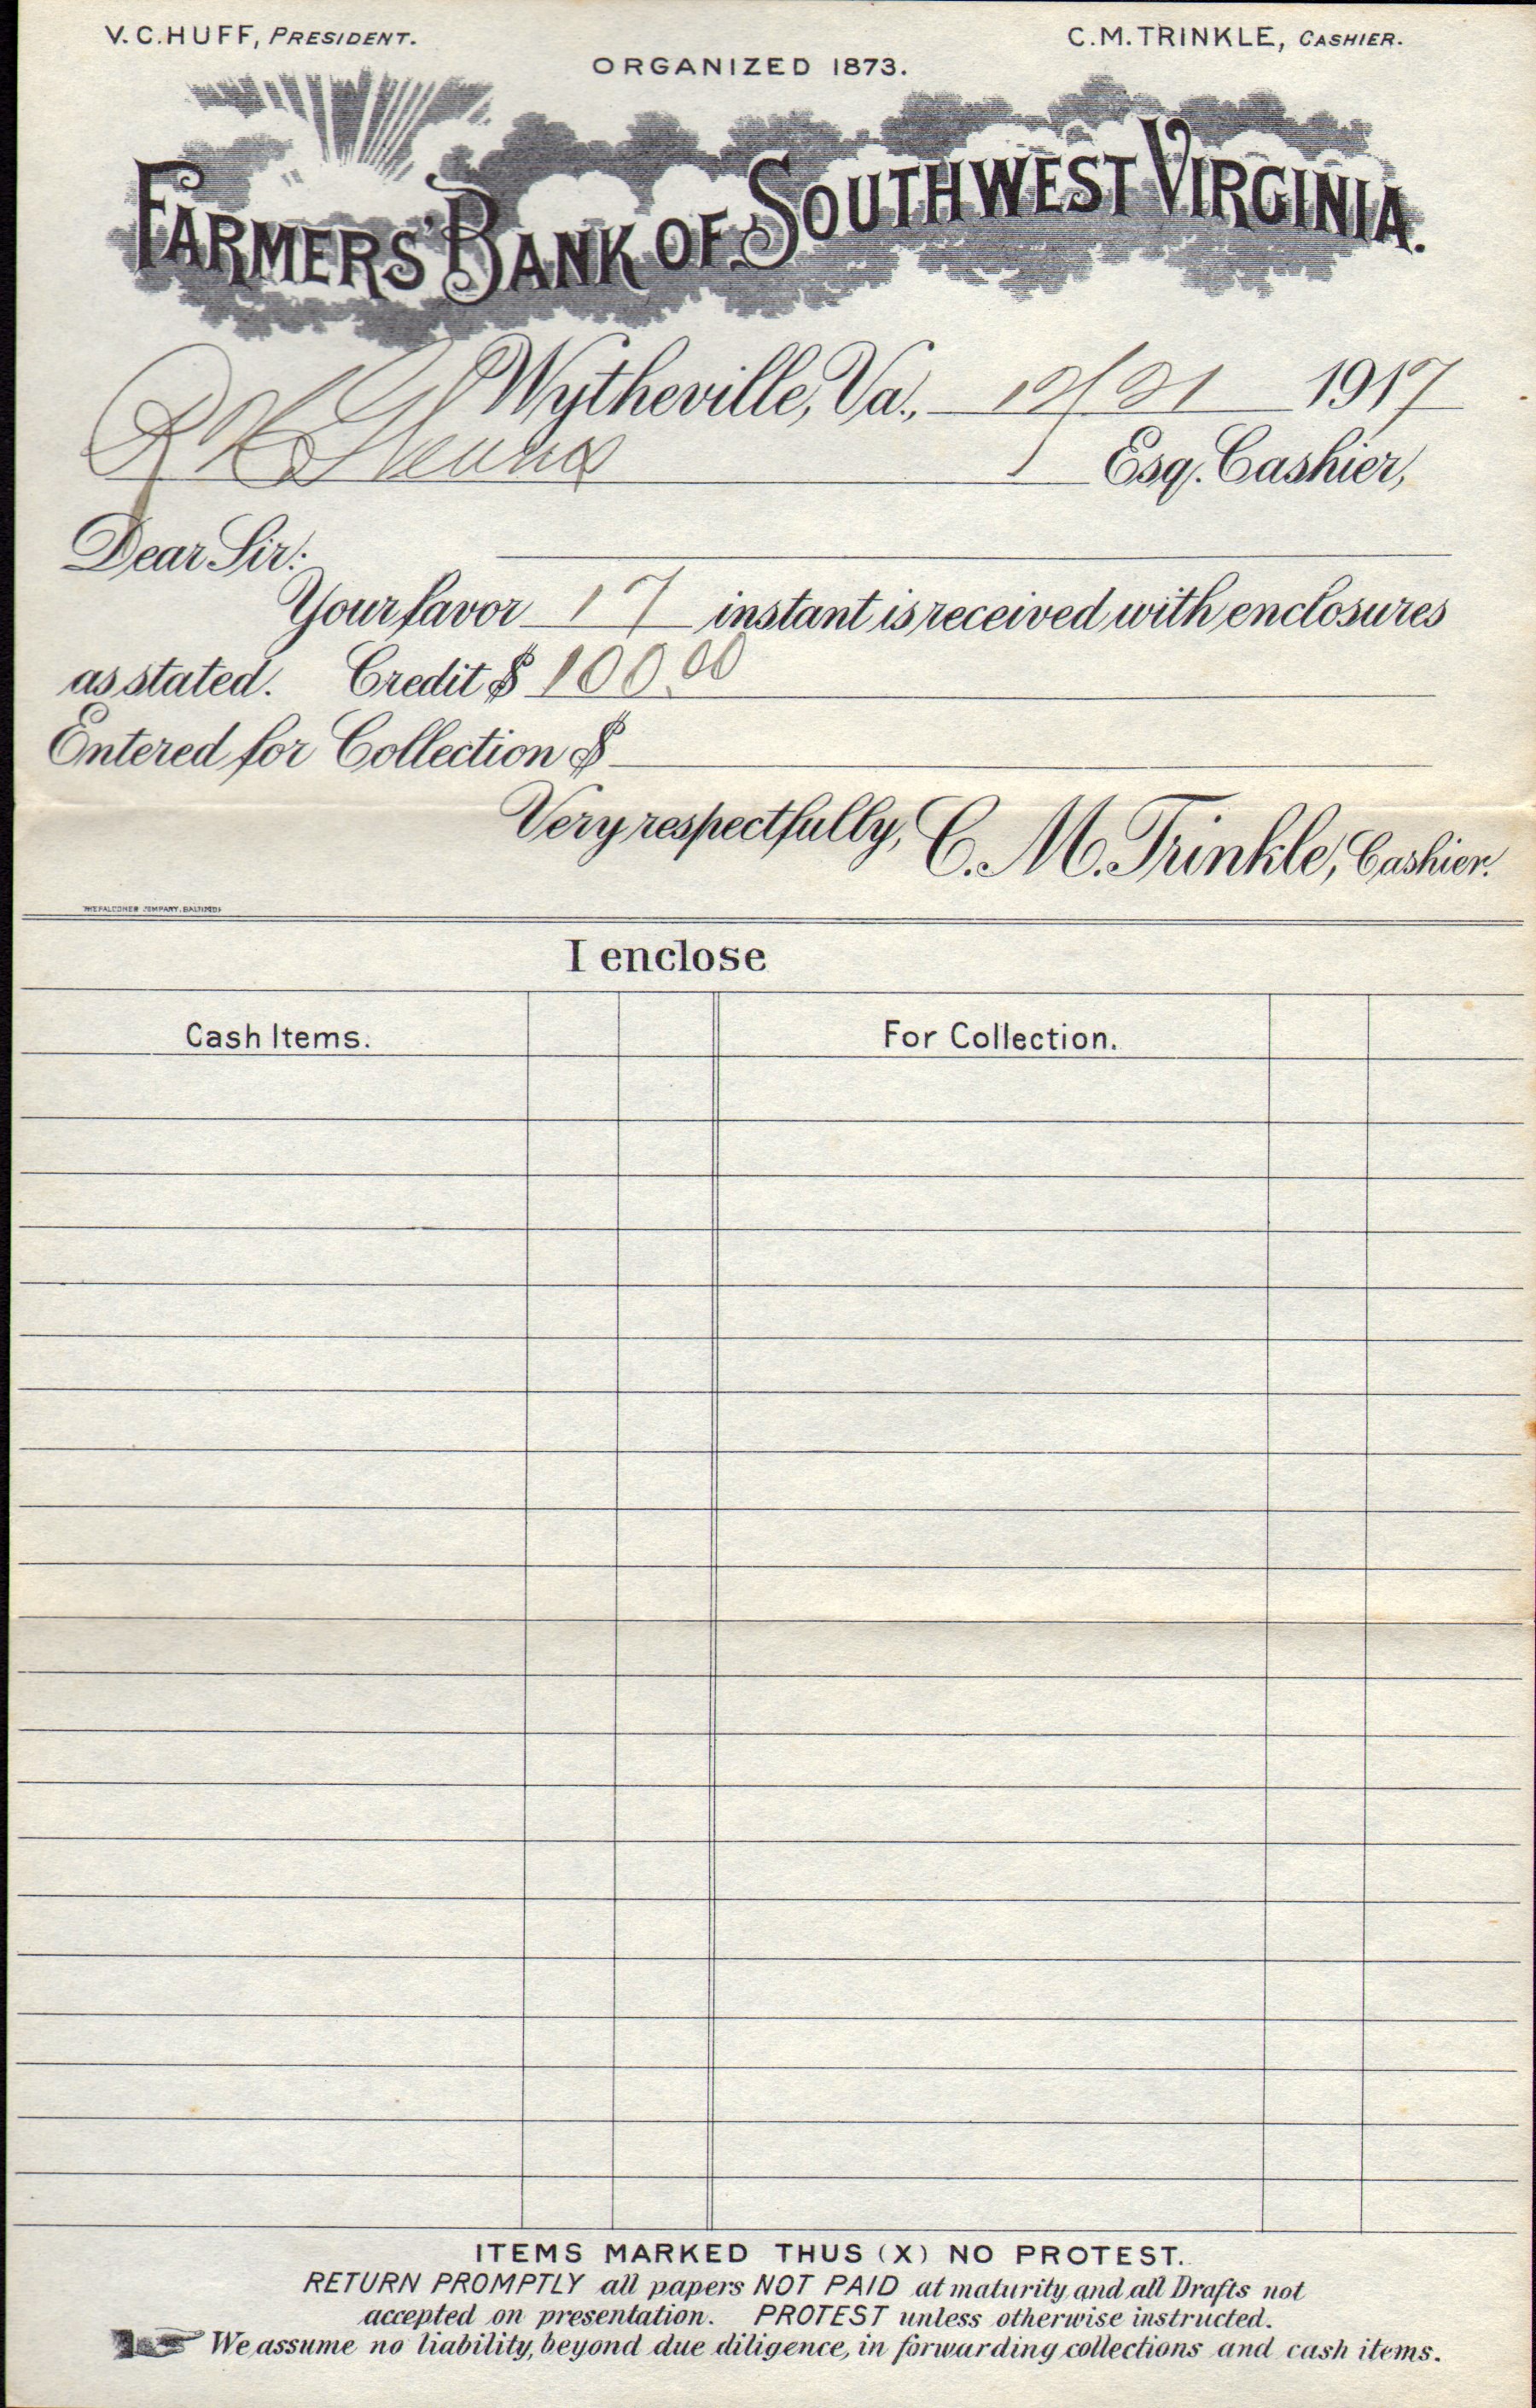 V. C. HUFF, PRESIDENT.
C. M. TRINKLE, CASHIER.
ORGANIZED 1873.
FARMERS' BANK OF SOUTHWEST VIRGINIA.
Wytheville, Va., 12/21 1917
Esq. Cashier,
Dear Sir:
Your favor 17 instant is received with enclosures
as stated. Credit $ 100.00
Entered for Collection $
Very respectfully, C. M. Trinkle, Cashier.
THE FALCONER COMPANY, BALTIMORE
I enclose
Cash Items.
For Collection.
ITEMS MARKED THUS (X) NO PROTEST.
RETURN PROMPTLY all papers NOT PAID at maturity and all Drafts not
accepted on presentation. PROTEST unless otherwise instructed.
We assume no liability, beyond due diligence, in forwarding collections and cash items.